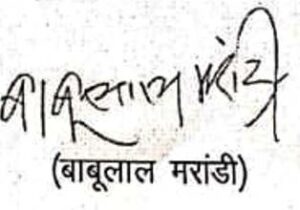 बाबूलाल मरांडी
(बाबूलाल मरांडी)